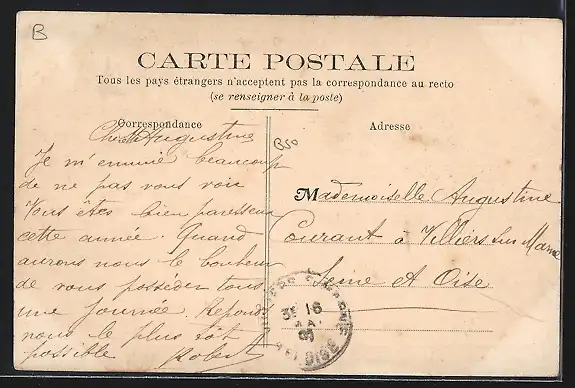 B
CARTE POSTALE
Tous les pays étrangers n'acceptent pas la correspondance au recto
(se renseigner à la poste)
Correspondance
Adresse
B50
Augustine
Je m'ennuie beaucoup
de ne pas vous voir
Vous êtes bien paresseux
cette année. Quand
aurons nous le bonheur
de vous posséder tous
une journée. Réponds
nous le plus tôt
possible Robert
Mademoiselle Augustine
Courant à Villiers sur Marne
Seine et Oise
16
OISE